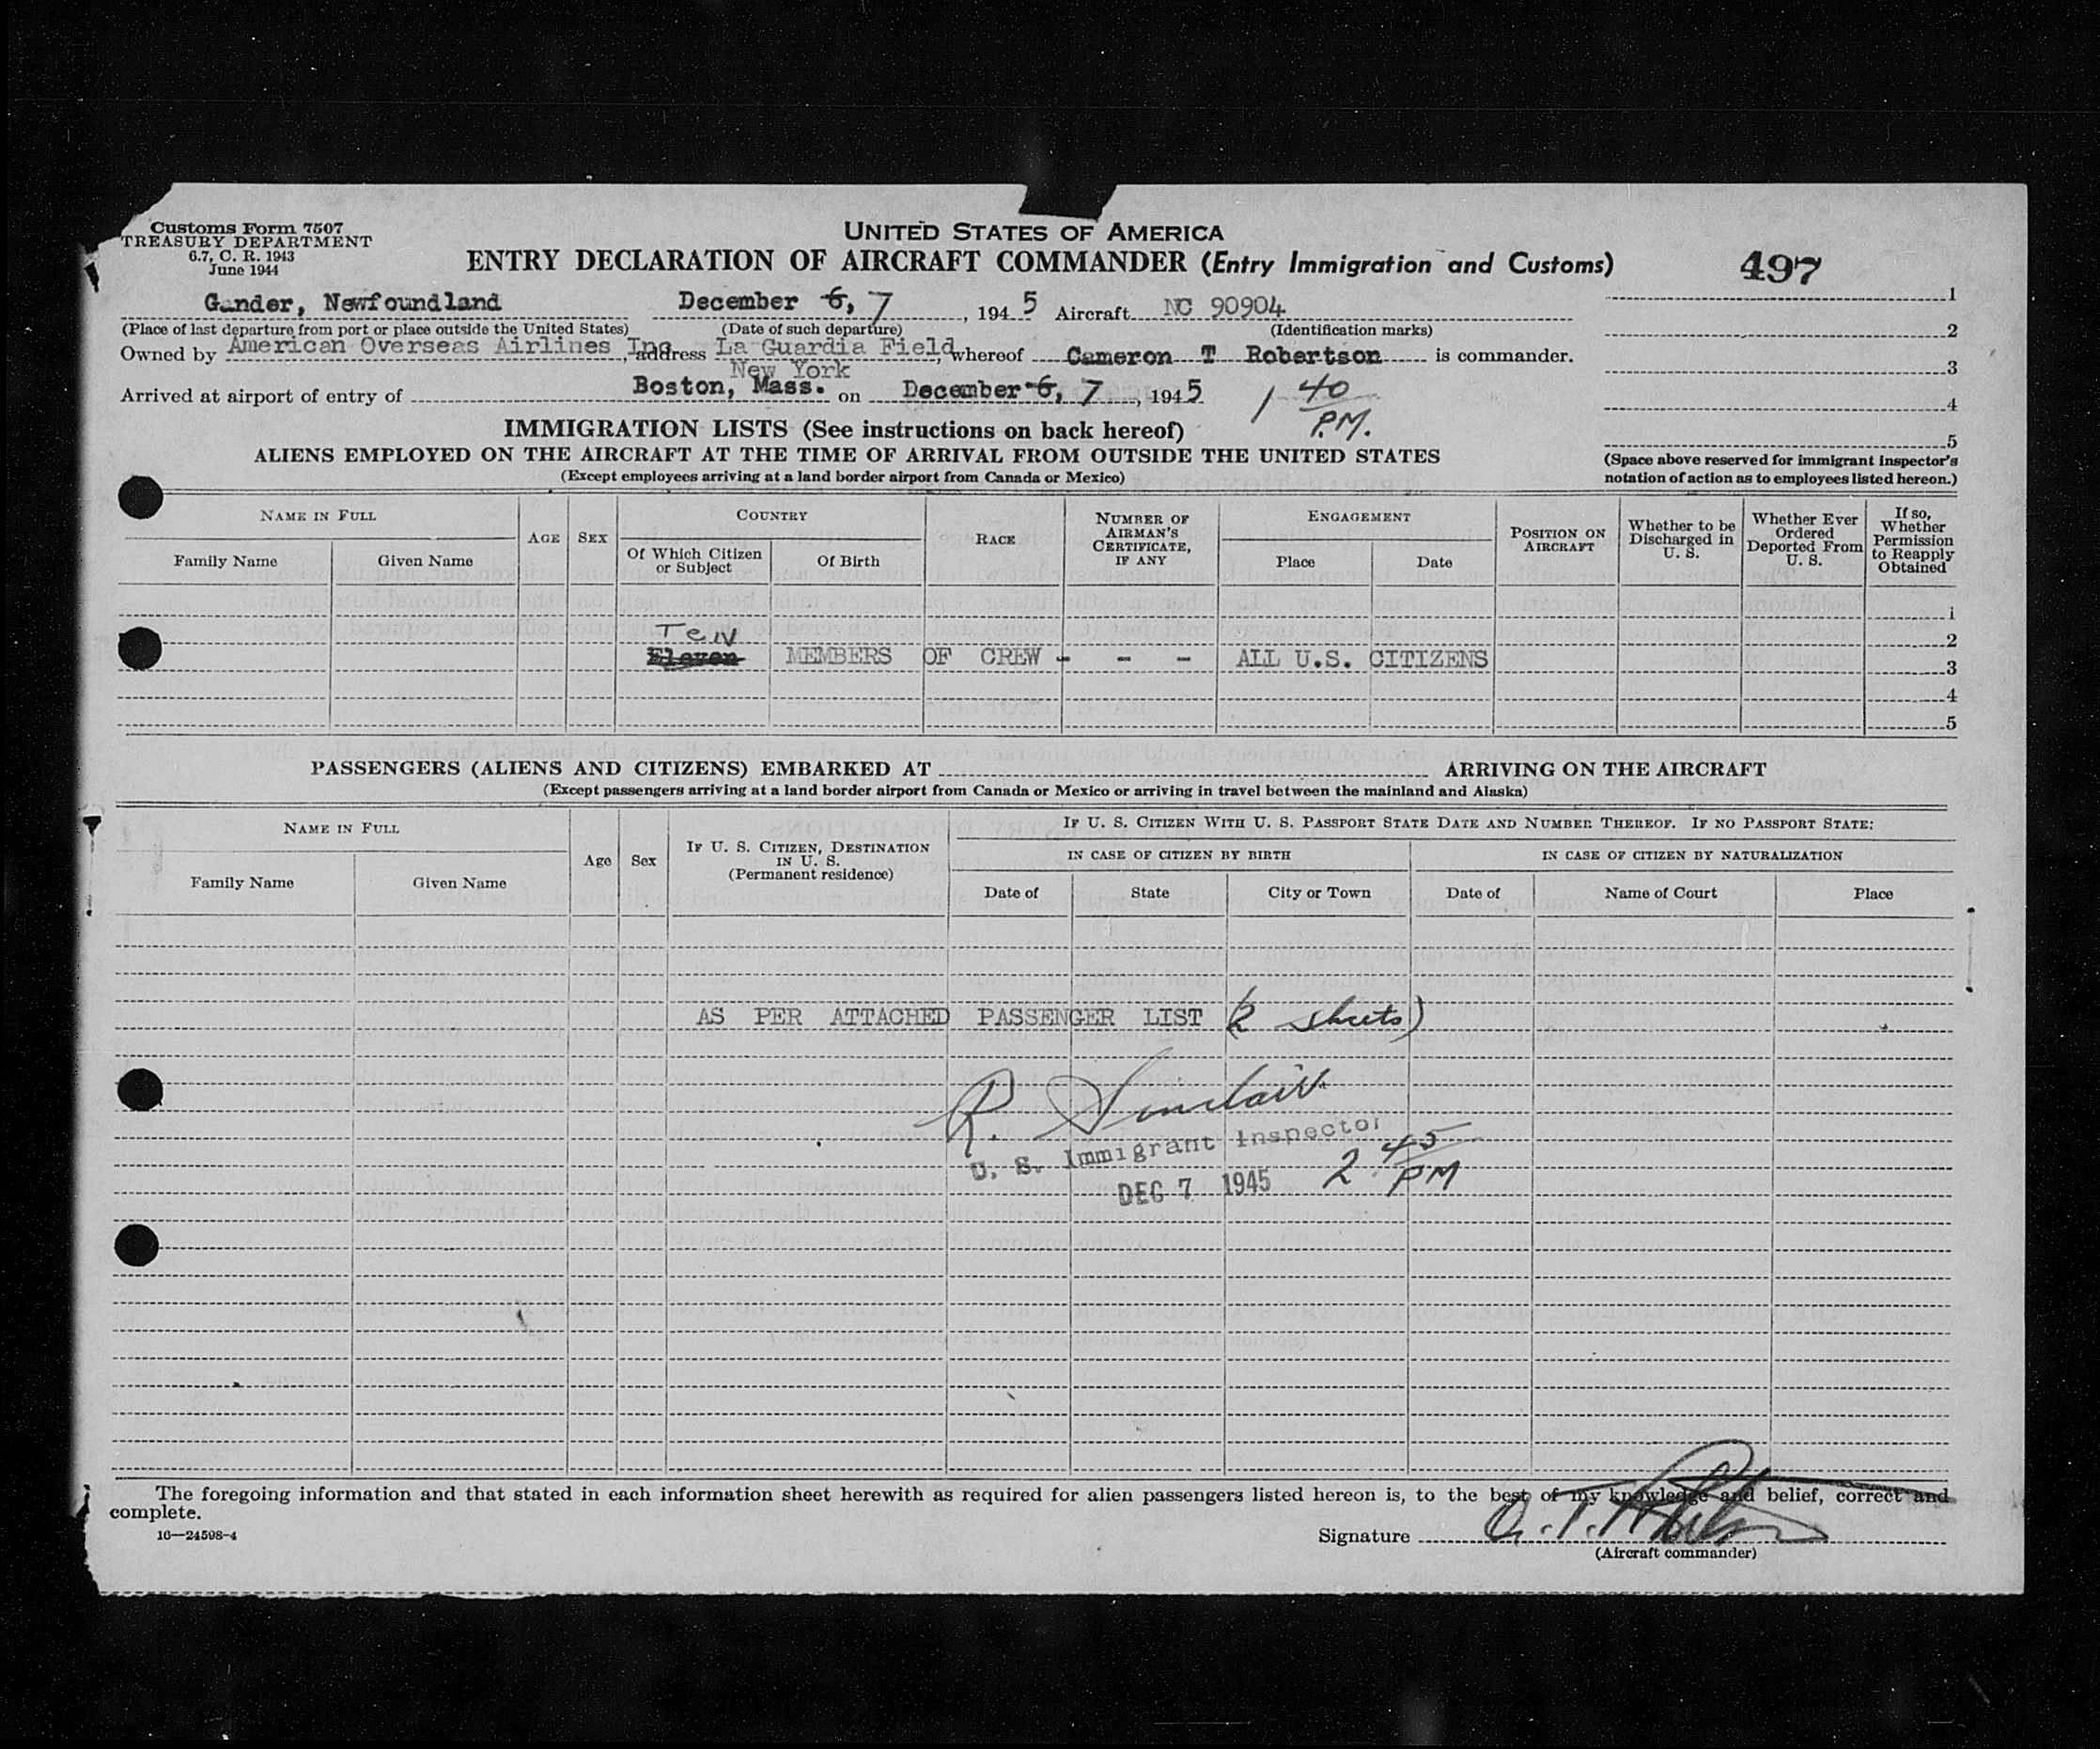 Customs Form 7507
TREASURY DEPARTMENT
6.7, C. R. 1943
June 1944
UNITED STATES OF AMERICA
ENTRY DECLARATION OF AIRCRAFT COMMANDER (Entry Immigration and Customs)
497
Gander, Newfoundland December 6, 7, 1945 Aircraft NC 90904
(Place of last departure from port or place outside the United States) (Date of such departure) (Identification marks)
Owned by American Overseas Airlines Inc, address La Guardia Field, whereof Cameron T Robertson is commander.
New York
Arrived at airport of entry of Boston, Mass. on December 6, 7, 1945 1 40 P.M.
1
2
3
4
5
(Space above reserved for immigrant inspector's
notation of action as to employees listed hereon.)
IMMIGRATION LISTS (See instructions on back hereof)
ALIENS EMPLOYED ON THE AIRCRAFT AT THE TIME OF ARRIVAL FROM OUTSIDE THE UNITED STATES
(Except employees arriving at a land border airport from Canada or Mexico)
NAME IN FULL
Family Name Given Name
AGE SEX
COUNTRY
Of Which Citizen or Subject Of Birth
RACE
NUMBER OF AIRMAN'S CERTIFICATE, IF ANY
ENGAGEMENT
Place Date
POSITION ON AIRCRAFT
Whether to be Discharged in U. S.
Whether Ever Ordered Deported From U. S.
If so, Whether Permission to Reapply Obtained
1
Ten 2
Eleven MEMBERS OF CREW - - - ALL U.S. CITIZENS 3
4
5
PASSENGERS (ALIENS AND CITIZENS) EMBARKED AT ARRIVING ON THE AIRCRAFT
(Except passengers arriving at a land border airport from Canada or Mexico or arriving in travel between the mainland and Alaska)
NAME IN FULL
Family Name Given Name
Age Sex
IF U. S. CITIZEN, DESTINATION IN U. S.
(Permanent residence)
IF U. S. CITIZEN WITH U. S. PASSPORT STATE DATE AND NUMBER THEREOF. IF NO PASSPORT STATE:
IN CASE OF CITIZEN BY BIRTH IN CASE OF CITIZEN BY NATURALIZATION
Date of State City or Town Date of Name of Court Place
AS PER ATTACHED PASSENGER LIST (2 sheets)
R. Sinclair
U. S. Immigrant Inspector
DEC 7 1945 2 45 PM
The foregoing information and that stated in each information sheet herewith as required for alien passengers listed hereon is, to the best of my knowledge and belief, correct and
complete.
16—24598-4
Signature
(Aircraft commander)